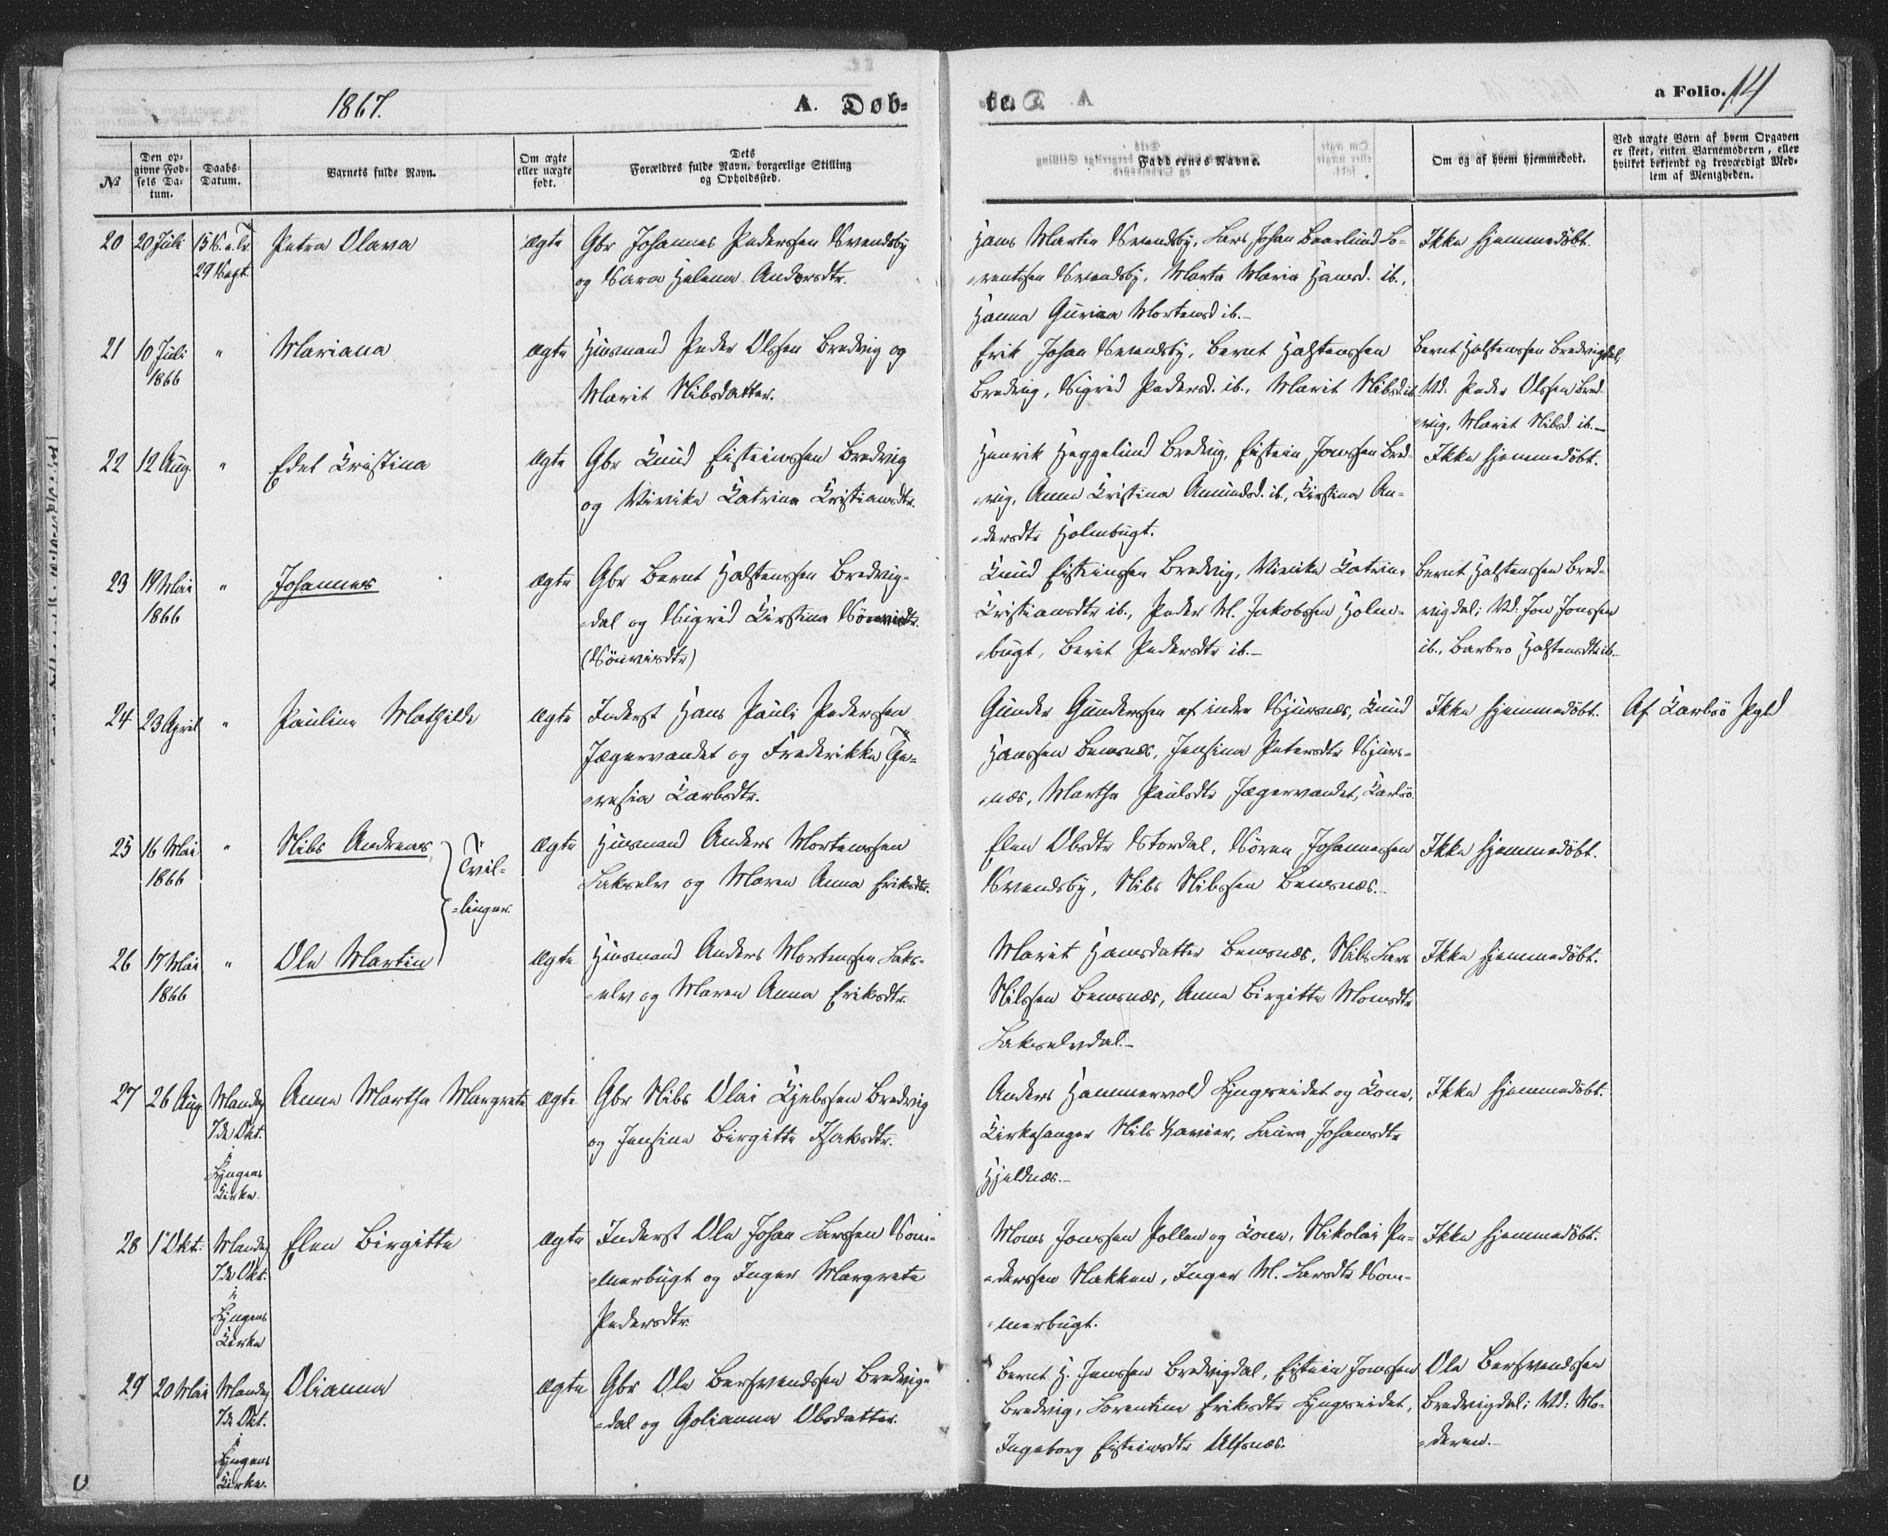 1867.
A. Døb-
te.
a Folio. 14
№
Den op-
givne Fød-
sels Da-
tum.
Daabs-
Datum.
Barnets fulde Navn.
Om ægte
eller uægte
født.
Dets
Forældres fulde Navn, borgerlige Stilling
og Opholdssted.
Faddernes Navne.
Om og af hvem hjemmedøbt.
Ved uægte Børn af hvem Opgaven
er skeet, enten Barnemoderen, eller
hvilket bekjendt og troværdigt Med-
lem af Menigheden.
20 20 Juli 15 S. e. Tr. 29 Sept. Petra Olava ægte
Gbr Johannes Pederssen Svendsby
og Sara Helena Andersdtr.
Hans Martin Svendsby, Lars Johan Baarlund Lo-
rentssen Svendsby, Marta Maria Hansd. ib.,
Hanna Gurina Mortensd ib.-
Ikke hjemmedøbt.
21 10 Juli 1866 " Mariana ægte
Husmand Peder Olssen Bredvig og
Marit Nilsdatter.
Erik Johan Svendsby, Bernt Halstenssen
Bredvig, Sigrid Pedersd. ib., Marit Nilsd. ib.
Bernt Halstenssen Bredvigdal,
Vd: Peder Olssen Bred-
vig, Marit Nilsd. ib.-
22 12 Aug " Edel Cristina ægte
Gbr Knud Eisteinssen Bredvig
og Vivike Catrina Cristiansdtr.
Henrik Heggelund Bredvig, Eistein Jonssen Bred-
vig, Anne Cristina Amundsd. ib., Kirstina An-
dersdtr Holmbugt.
Ikke hjemmedøbt.
23 19 Mai 1866 " Johannes ægte
Gbr Bernt Halstenssen Bredvig-
dal og Sigrid Kirstina
(Sörvisdtr)
Knud Eisteinssen Bredvig, Vivike Catrine
Cristiansdtr ib., Peder M. Jakobssen Holm-
bugt, Berit Pedersdtr ib.-
Bernt Halstenssen Bred-
vigdal; Vd: Jon Jonssen
ib., Barbro Halstensdtr ib.-
24 23 April " Pauline Mathilde ægte
Inderst Hans Pauli Pederssen
Jægervandet og Frederikke The-
resia Carlsdtr.
Gunder Gunderssen af indre Sjursnæs, Knud
Hanssen Bensnæs, Jensine Petersdtr Sjurs-
næs, Martha Paulsdtr Jægervandet, Karlsø
Ikke hjemmedøbt.
Af Karlsø Pgld
25 16 Mai 1866 " Nils Andreas, ægte
Tvil-
linger
Husmand Anders Mortenssen
Lakselv og Maren Anna Eriksdtr.
Elen Olsdtr Stordal, Sören Johannessen
Svendsby, Nils Nilssen Bensnæs.
Ikke hjemmedøbt.
26 17 Mai 1866 " Ole Martin ægte
Husmand Anders Mortenssen Laks-
elv og Maren Anna Eriksdtr.
Marit Hansdatter Bensnæs, Nils Lars
Nilssen Bensnæs, Anne Birgitte Monsdtr
Lakselvdal.-
Ikke hjemmedøbt.
27 26 Aug Mandag 7de Okt. i Lyngens Kirke. Anne Martha Margrete ægte
Gbr Nils Olai Kjelssen Bredvig
og Jensine Birgitte Isaksdtr.
Anders Hammervold Lyngseidet og Kone,
Kirkesanger Nils Xavier, Laura Johansdtr
Hjeldnæs.-
Ikke hjemmedøbt.
28 1 Okt. Mandag 7de Okt. i Lyngens Kirke Elen Birgitte ægte
Inderst Ole Johan Larssen Som-
merbugt og Inger Margrete
Pedersdtr
Mons Jonssen Pollen og Kone, Nikolai Pe-
derssen Nakken, Inger M. Larsdtr Som-
merbugt.
Ikke hjemmedøbt.
29 20 Mai Mandag 7de Okt. i Lyngens Kirke. Olianna ægte
Gbr Ole Bersvendssen Bredvig-
dal og Golianna Olsdatter.
Bernt H. Jenssen Bredvigdal, Eistein Jonssen
Bredvig, Lorentine Eriksdtr Lyngseidet,
Ingeborg Eisteinsdtr Ulfsnæs.
Ole Bersvendssen
Bredvigdal; Vd: Mo-
deren.-